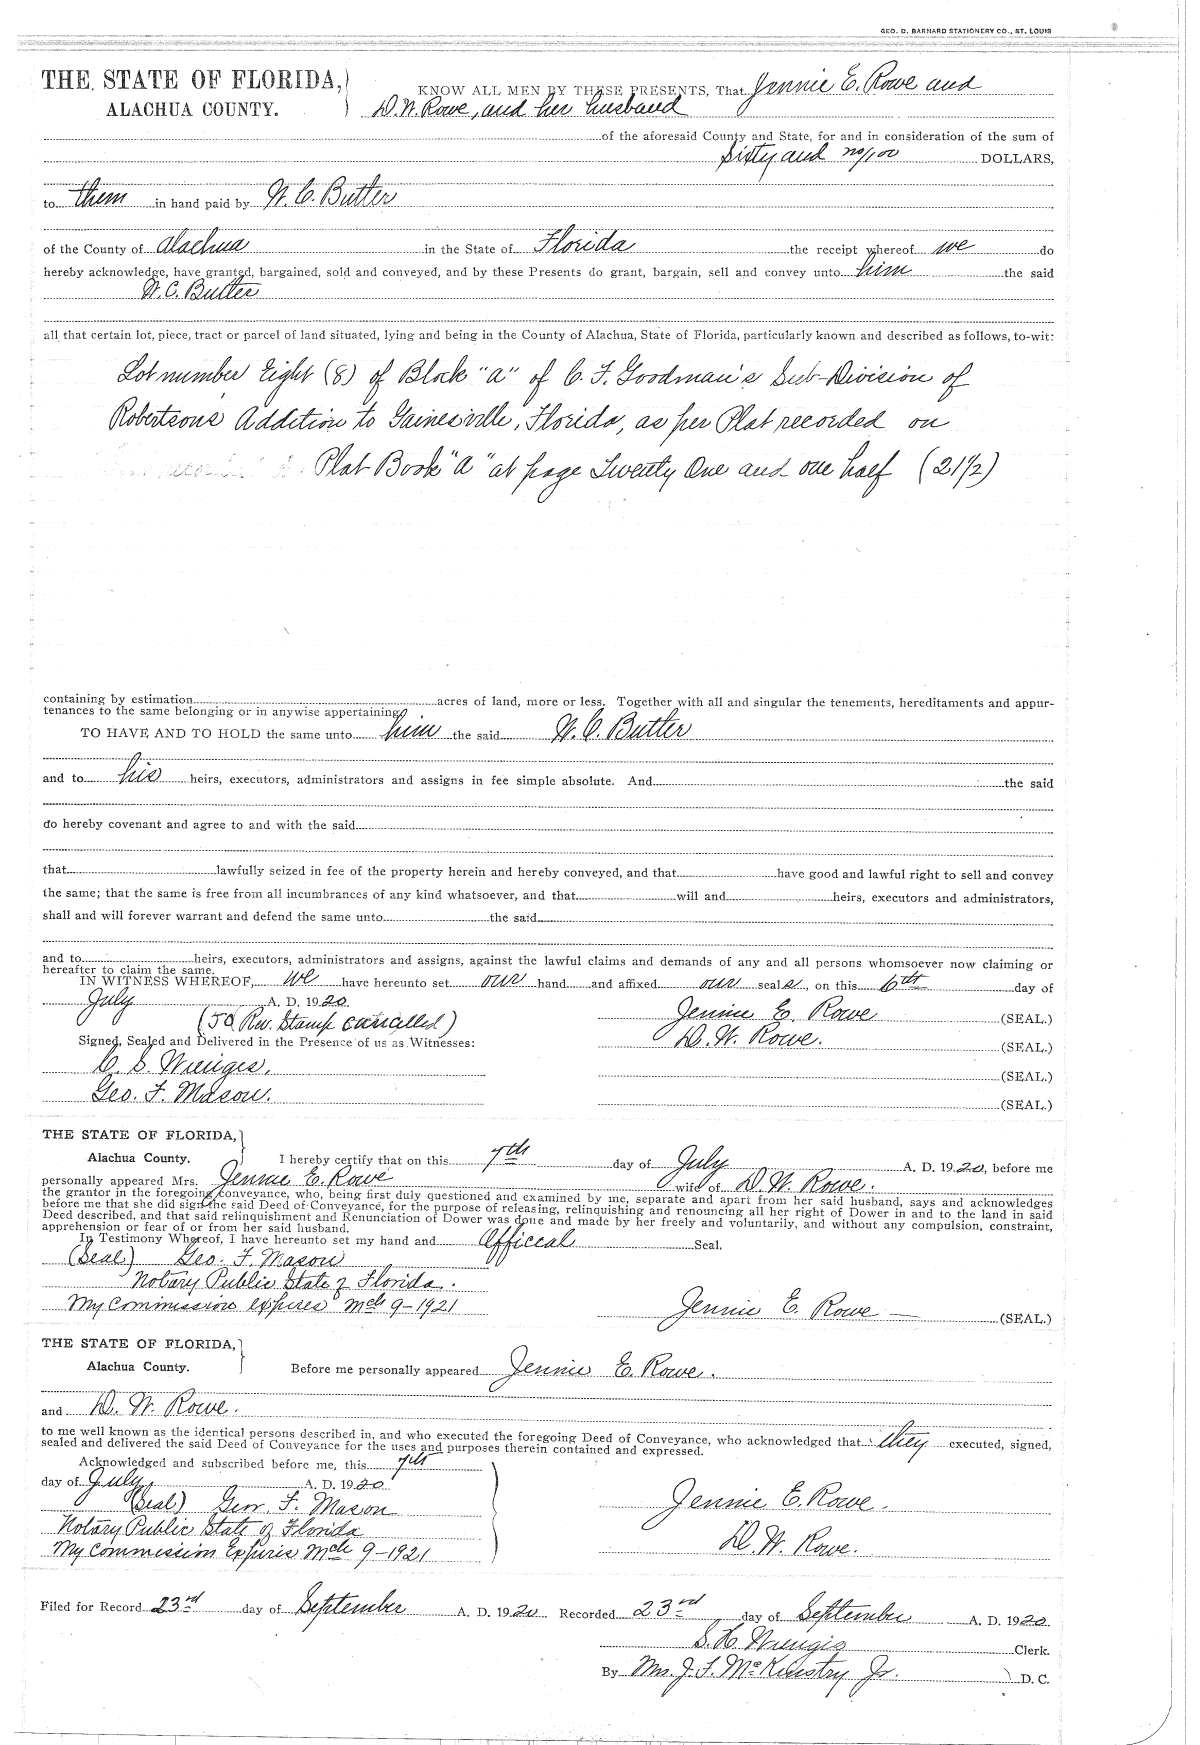 GEO. D. BARNARD STATIONERY CO., ST. LOUIS
THE STATE OF FLORIDA,
ALACHUA COUNTY.
KNOW ALL MEN BY THESE PRESENTS, That Jennie E. Rowe and
D. W. Rowe, and her husband
of the aforesaid County and State, for and in consideration of the sum of
Sixty and no/100 DOLLARS,
to them in hand paid by W. C. Butler
of the County of Alachua in the State of Florida the receipt whereof we do
hereby acknowledge, have granted, bargained, sold and conveyed, and by these Presents do grant, bargain, sell and convey unto him the said
W. C. Butler
all that certain lot, piece, tract or parcel of land situated, lying and being in the County of Alachua, State of Florida, particularly known and described as follows, to-wit:
Lot number Eight (8) of Block "A" of C. F. Goodman's Sub-Division of
Robertsons Addition to Gainesville, Florida, as per Plat recorded on
Plat Book "A" at page Twenty One and one half (21½)
containing by estimation acres of land, more or less. Together with all and singular the tenements, hereditaments and appur-
tenances to the same belonging or in anywise appertaining
TO HAVE AND TO HOLD the same unto him the said W. C. Butler
and to his heirs, executors, administrators and assigns in fee simple absolute. And the said
do hereby covenant and agree to and with the said
that lawfully seized in fee of the property herein and hereby conveyed, and that have good and lawful right to sell and convey
the same; that the same is free from all incumbrances of any kind whatsoever, and that will and heirs, executors and administrators,
shall and will forever warrant and defend the same unto the said
and to heirs, executors, administrators and assigns, against the lawful claims and demands of any and all persons whomsoever now claiming or
hereafter to claim the same.
IN WITNESS WHEREOF, we have hereunto set our hand and affixed our seals, on this 6th day of
July A. D. 1920
(50 Rev. Stamp cancelled)
Jennie E. Rowe (SEAL.)
Signed, Sealed and Delivered in the Presence of us as Witnesses:
D. W. Rowe. (SEAL.)
C. S. Wienges,
(SEAL.)
Geo. F. Mason.
(SEAL.)
THE STATE OF FLORIDA,
Alachua County.
I hereby certify that on this 7th day of July A. D. 1920, before me
personally appeared Mrs. Jennie E. Rowe wife of D. W. Rowe.
the grantor in the foregoing conveyance, who, being first duly questioned and examined by me, separate and apart from her said husband, says and acknowledges
before me that she did sign the said Deed of Conveyance, for the purpose of releasing, relinquishing and renouncing all her right of Dower in and to the land in said
Deed described, and that said relinquishment and Renunciation of Dower was done and made by her freely and voluntarily, and without any compulsion, constraint,
apprehension or fear of or from her said husband.
In Testimony Whereof, I have hereunto set my hand and official Seal.
(Seal) Geo. F. Mason
Notary Public State of Florida.
My Commission expires Mch 9-1921
Jennie E. Rowe (SEAL.)
THE STATE OF FLORIDA,
Alachua County.
Before me personally appeared Jennie E. Rowe.
and D. W. Rowe.
to me well known as the identical persons described in, and who executed the foregoing Deed of Conveyance, who acknowledged that they executed, signed,
sealed and delivered the said Deed of Conveyance for the uses and purposes therein contained and expressed.
Acknowledged and subscribed before me, this 7th
day of July A. D. 1920
(Seal) Geo. F. Mason
Jennie E. Rowe.
Notary Public State of Florida
My Commission Expires Mch 9-1921
D. W. Rowe.
Filed for Record 23rd day of September A. D. 1920 Recorded 23rd day of September A. D. 1920
S. H. Wienges Clerk.
By Mrs. J. F. McKinstry Jr. D. C.